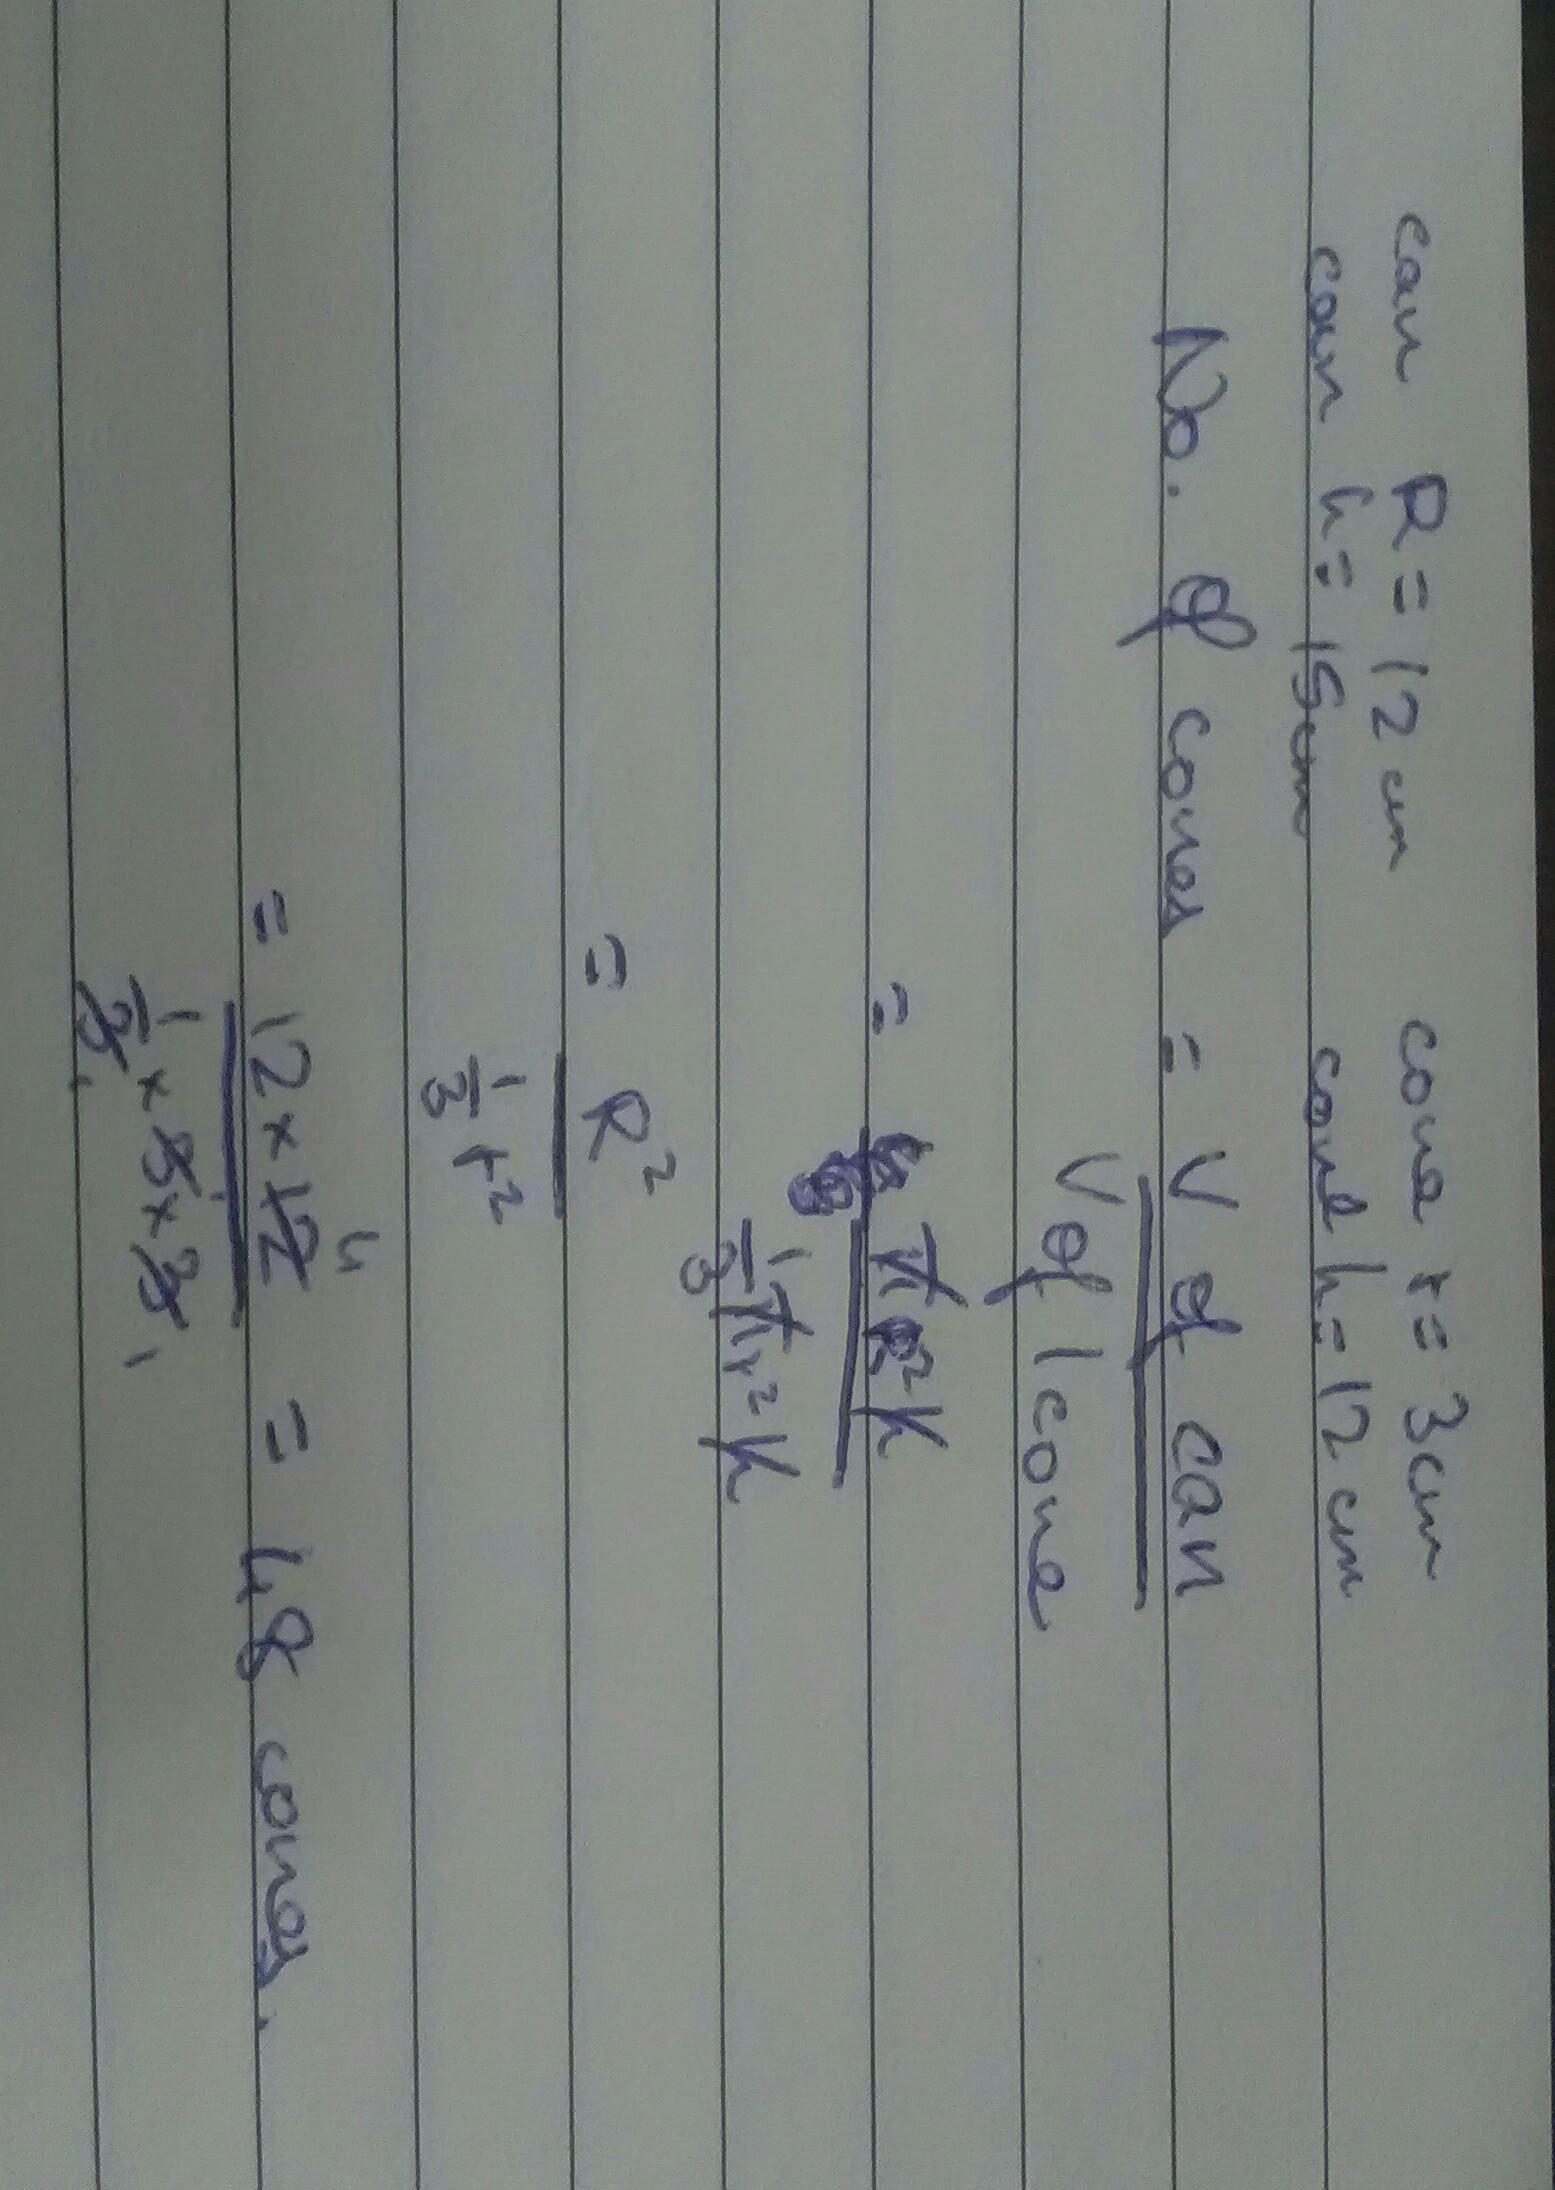 can R = 12 cm cone r = 3cm
can h = 15cm cone h = 12 cm
No. of cones = V of can
V of 1 cone
= πR²h
1/3 πr²h
= R²
1/3 r²
= 12 × 12 4 = 48 cones.
1/3 × 3 × 3 1